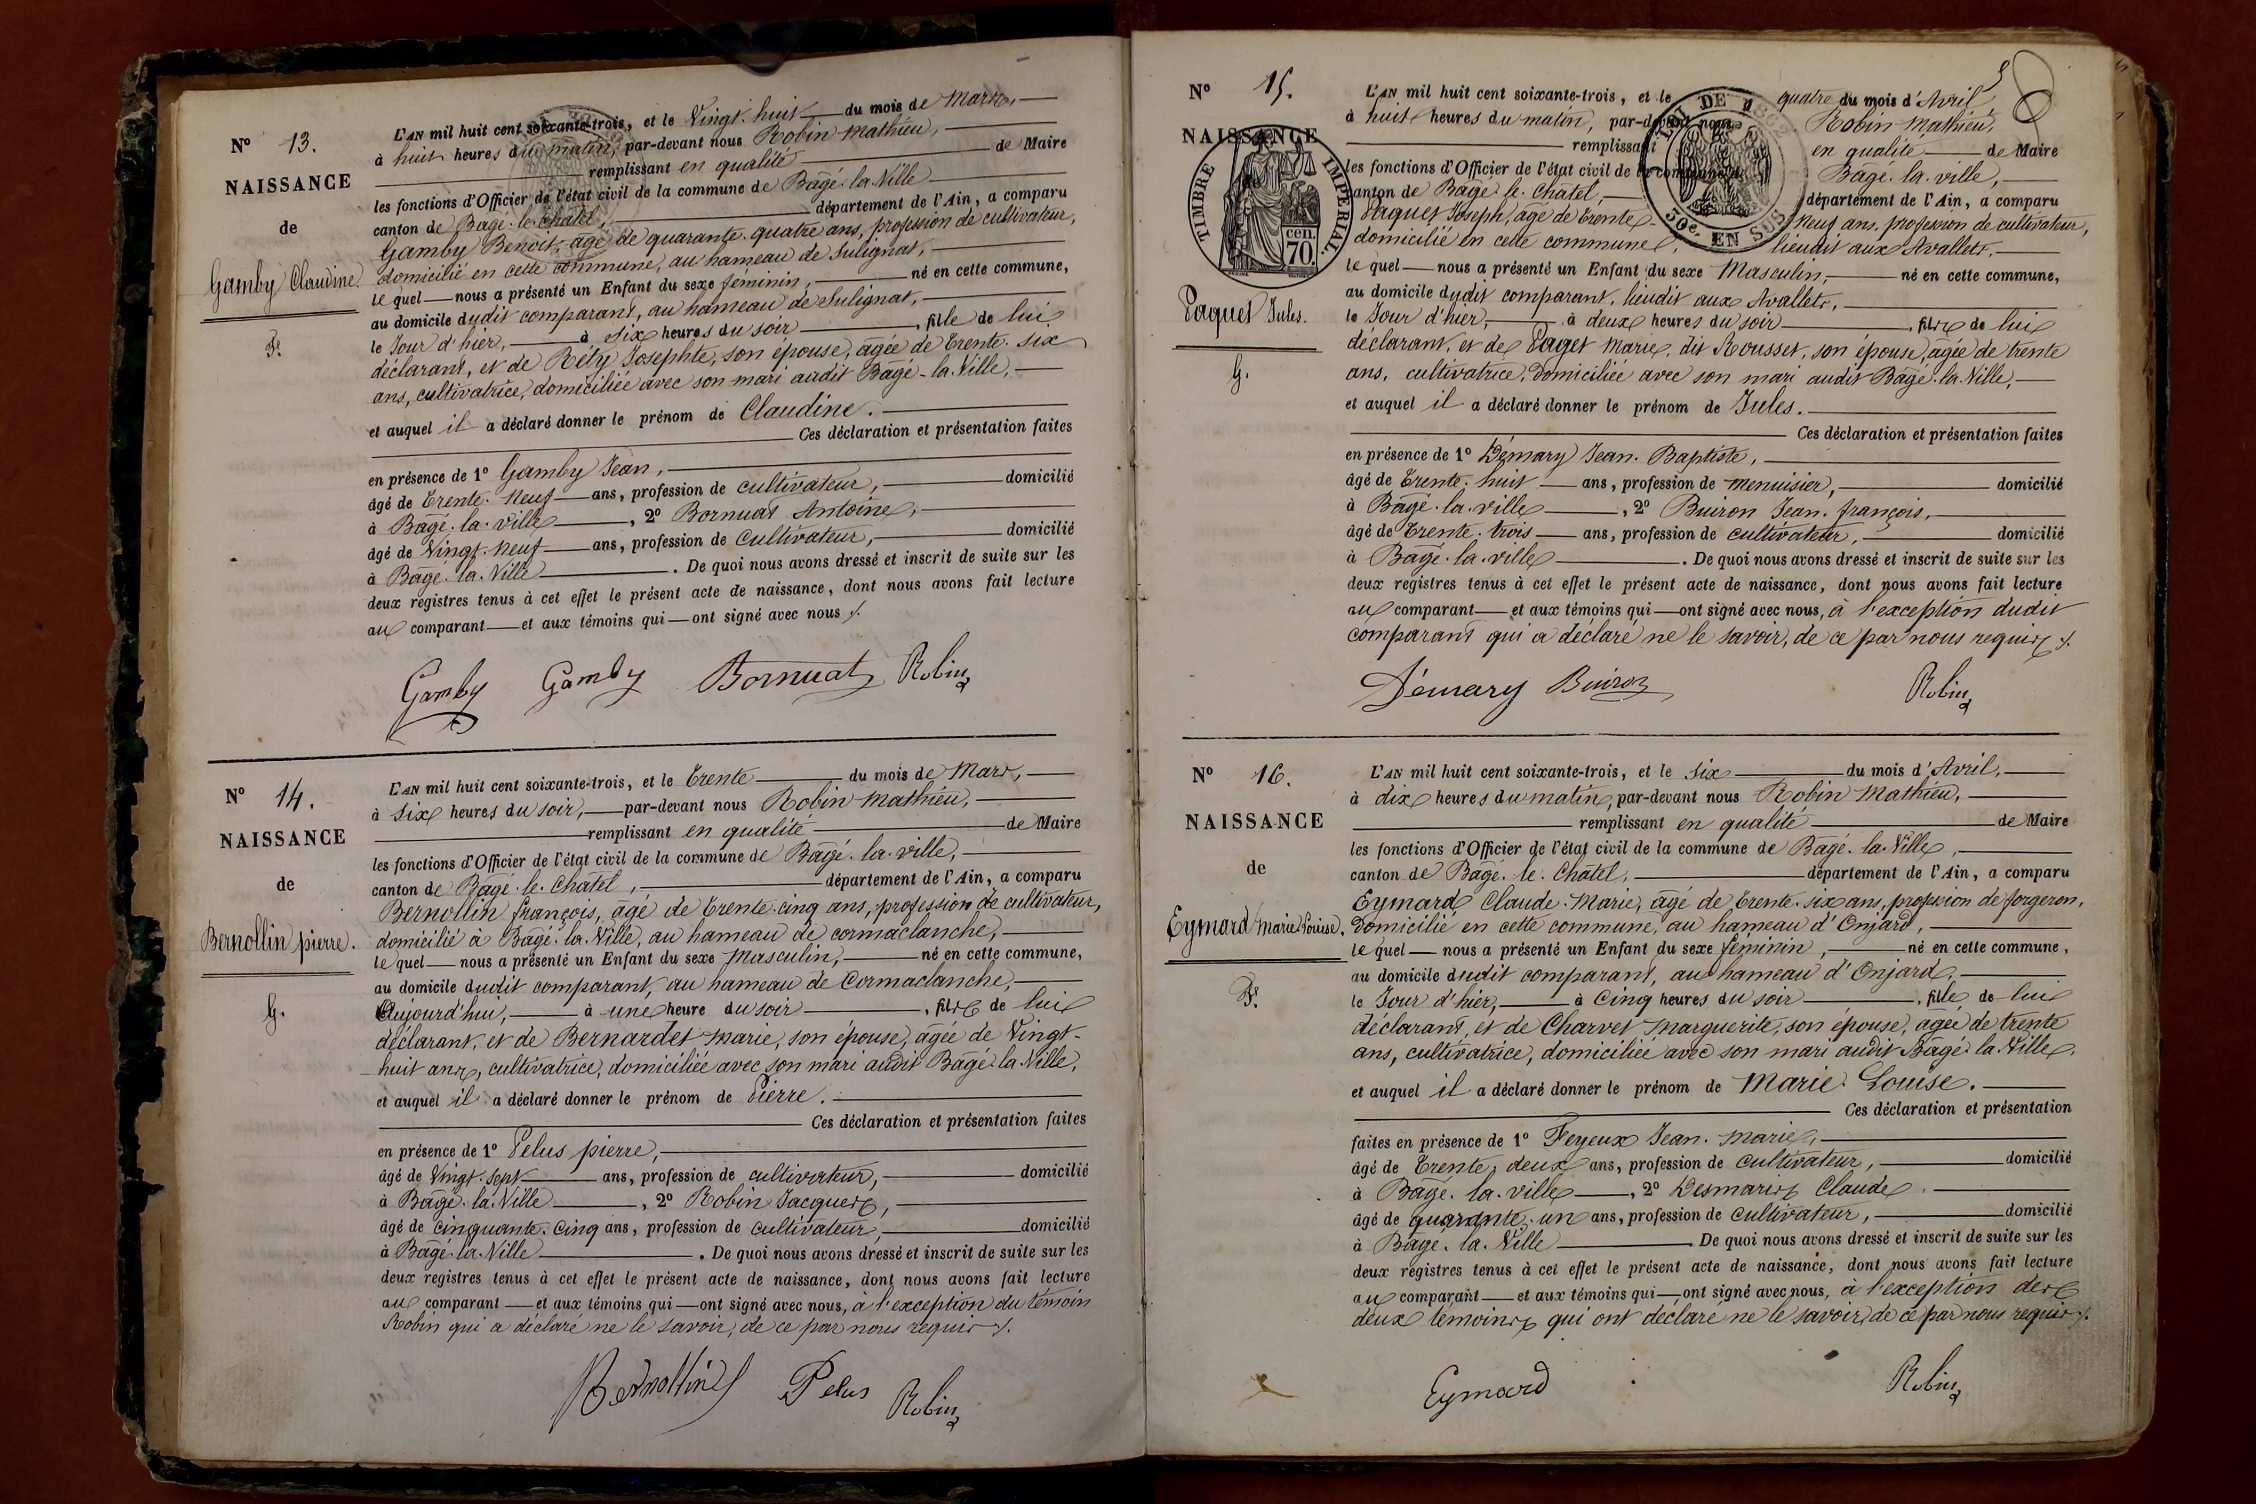 N° 13.
NAISSANCE
de
Gamby Claudine.
F.
L'AN mil huit cent soixante-trois, et le Vingt-huit du mois de Mars,
à huit heures du matin, par-devant nous Robin Mathieu,
remplissant en qualité de Maire
les fonctions d'Officier de l'état civil de la commune de Bâgé-la-Ville
canton de Bâgé-le-Châtel, département de l'Ain, a comparu
Gamby Benoit, âgé de quarante-quatre ans, profession de cultivateur,
domicilié en cette commune, au hameau de Sulignat,
le quel nous a présenté un Enfant du sexe féminin, né en cette commune,
au domicile dudit comparant, au hameau de Sulignat,
le Jour d'hier, à six heures du soir, fille de lui
déclarant, et de Réty Josephte, son épouse, âgée de trente-six
ans, cultivatrice, domiciliée avec son mari audit Bâgé-la-Ville,
et auquel il a déclaré donner le prénom de Claudine.
Ces déclaration et présentation faites
en présence de 1° Gamby Jean,
âgé de trente-neuf ans, profession de cultivateur, domicilié
à Bâgé-la-Ville, 2° Bornuat Antoine,
âgé de Vingt-neuf ans, profession de cultivateur, domicilié
à Bâgé-la-Ville. De quoi nous avons dressé et inscrit de suite sur les
deux registres tenus à cet effet le présent acte de naissance, dont nous avons fait lecture
au comparant et aux témoins qui ont signé avec nous
Gamby Gamby Bornuat Robin
N° 14.
NAISSANCE
de
Bernollin pierre.
G.
L'AN mil huit cent soixante-trois, et le trente du mois de Mars,
à six heures du soir, par-devant nous Robin Mathieu,
remplissant en qualité de Maire
les fonctions d'Officier de l'état civil de la commune de Bâgé-la-ville,
canton de Bâgé-le-Châtel, département de l'Ain, a comparu
Bernollin françois, âgé de trente-cinq ans, profession de cultivateur,
domicilié à Bâgé-la-Ville, au hameau de cormaclanche,
le quel nous a présenté un Enfant du sexe Masculin, né en cette commune,
au domicile dudit comparant, au hameau de Cormaclanche,
Aujourd'hui, à une heure du soir, fils de lui
déclarant, et de Bernardet Marie, son épouse, âgée de Vingt-
huit ans, cultivatrice, domiciliée avec son mari audit Bâgé-la-Ville,
et auquel il a déclaré donner le prénom de Pierre.
Ces déclaration et présentation faites
en présence de 1° Pelus pierre,
âgé de Vingt-sept ans, profession de cultivateur, domicilié
à Bâgé-la-Ville, 2° Robin Jacques,
âgé de cinquante-cinq ans, profession de cultivateur, domicilié
à Bâgé-la-Ville. De quoi nous avons dressé et inscrit de suite sur les
deux registres tenus à cet effet le présent acte de naissance, dont nous avons fait lecture
au comparant et aux témoins qui ont signé avec nous, à l'exception du témoin
Robin qui a déclaré ne le savoir, de ce par nous requis
Bernollin Pelus Robin
N° 15.
NAISSANCE
TIMBRE IMPERIAL.
cen.
70.
Paquet Jules.
G.
5
LOI DE 1862
50c. EN SUS
L'AN mil huit cent soixante-trois, et le quatre du mois d'Avril,
à huit heures du matin, par-devant nous Robin Mathieu,
remplissant en qualité de Maire
les fonctions d'Officier de l'état civil de la commune de Bâgé-la-ville,
canton de Bâgé-le-Châtel, département de l'Ain, a comparu
Paquet Joseph, âgé de trente-neuf ans, profession de cultivateur,
domicilié en cette commune, lieudit aux Avallets,
le quel nous a présenté un Enfant du sexe Masculin, né en cette commune,
au domicile dudit comparant, lieudit aux Avallets,
le Jour d'hier, à deux heures du soir, fils de lui
déclarant, et de Paget Marie, dit Rousset, son épouse, âgée de trente
ans, cultivatrice, domiciliée avec son mari audit Bâgé-la-Ville,
et auquel il a déclaré donner le prénom de Jules.
Ces déclaration et présentation faites
en présence de 1° Démary Jean-Baptiste,
âgé de trente-huit ans, profession de menuisier, domicilié
à Bâgé-la-ville, 2° Buiron Jean-françois,
âgé de trente-trois ans, profession de cultivateur, domicilié
à Bâgé-la-ville. De quoi nous avons dressé et inscrit de suite sur les
deux registres tenus à cet effet le présent acte de naissance, dont nous avons fait lecture
au comparant et aux témoins qui ont signé avec nous, à l'exception dudit
comparant qui a déclaré ne le savoir, de ce par nous requis
Démary Buiron Robin
N° 16.
NAISSANCE
de
Eymard Marie Louise.
F.
L'AN mil huit cent soixante-trois, et le six du mois d'Avril,
à dix heures du matin, par-devant nous Robin Mathieu,
remplissant en qualité de Maire
les fonctions d'Officier de l'état civil de la commune de Bâgé-la-Ville,
canton de Bâgé-le-Châtel, département de l'Ain, a comparu
Eymard Claude-Marie, âgé de trente-six ans, profession de forgeron,
domicilié en cette commune, au hameau d'Onjard,
le quel nous a présenté un Enfant du sexe féminin, né en cette commune,
au domicile dudit comparant, au hameau d'Onjard,
le Jour d'hier, à cinq heures du soir, fille de lui
déclarant, et de Charvet Marguerite, son épouse, âgée de trente
ans, cultivatrice, domiciliée avec son mari audit Bâgé-la-Ville,
et auquel il a déclaré donner le prénom de Marie-Louise.
Ces déclaration et présentation
faites en présence de 1° Feyeux Jean-Marie,
âgé de trente-deux ans, profession de cultivateur, domicilié
à Bâgé-la-ville, 2° Desmaris Claude
âgé de quarante-un ans, profession de cultivateur, domicilié
à Bâgé-la-Ville. De quoi nous avons dressé et inscrit de suite sur les
deux registres tenus à cet effet le présent acte de naissance, dont nous avons fait lecture
au comparant et aux témoins qui ont signé avec nous, à l'exception des
deux témoins qui ont déclaré ne le savoir, de ce par nous requis
Eymard Robin